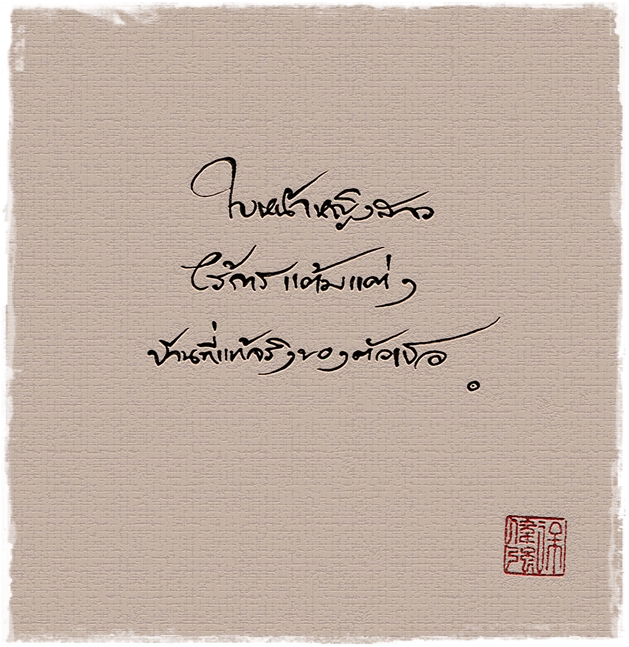 ใบหน้าหญิงสาว
ไร้การแต้มแต่ง
บ้านที่แท้จริงของตัวเธอ
。
徐偉強